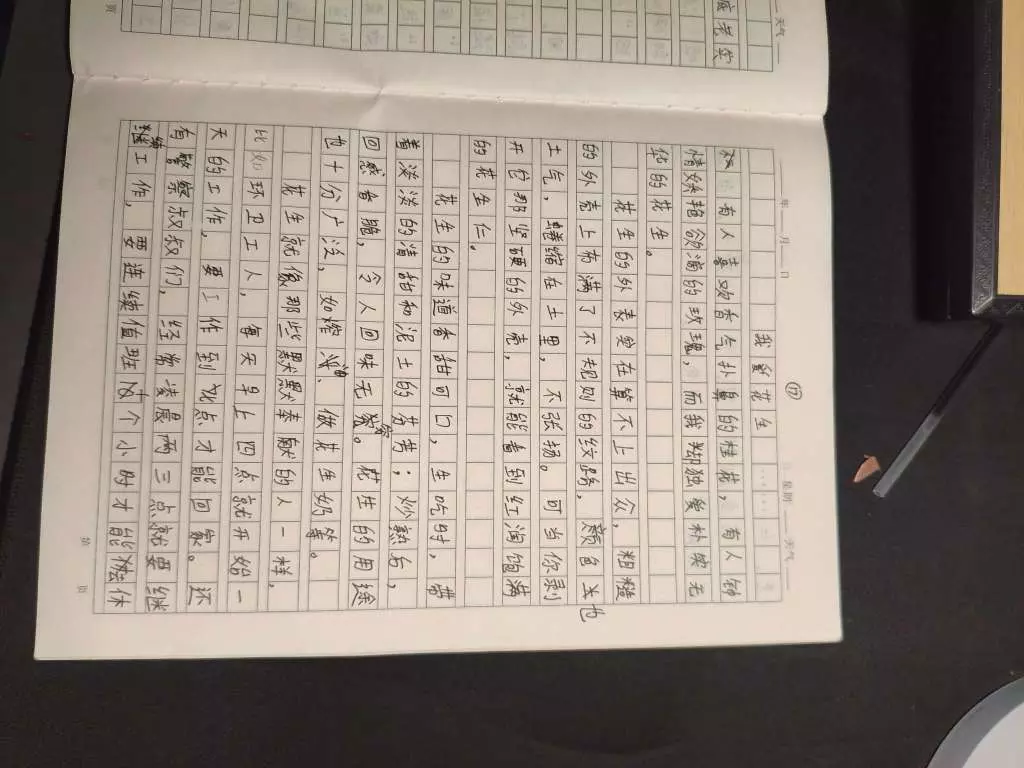 年 月 日 星期 天气
17
我爱花生
有人喜欢香气扑鼻的桂花,有人钟
情娇艳欲滴的玫瑰,而我却独爱朴实无
华的花生。
花生的外表实在算不上出众,粗糙
的外壳上布满了不规则的纹路,颜色也
土气,蜷缩在土里,不张扬。可当你剥
开它那坚硬的外壳,就能看到红润饱满
的花生仁。
花生的味道香甜可口,生吃时,带
着淡淡的清甜和泥土的芳香;炒熟后,
回感香脆,令人回味无穷。花生的用途
也十分广泛,如榨油、做花生奶等。
花生就像那些默默奉献的人一样,
比如环卫工人,每天早上四点就开始一
天的工作,要工作到 点才能回家。还
有警察叔叔们,经常凌晨两三点就要继
续工作,要连续值班 个小时才能 休
页
天气
页